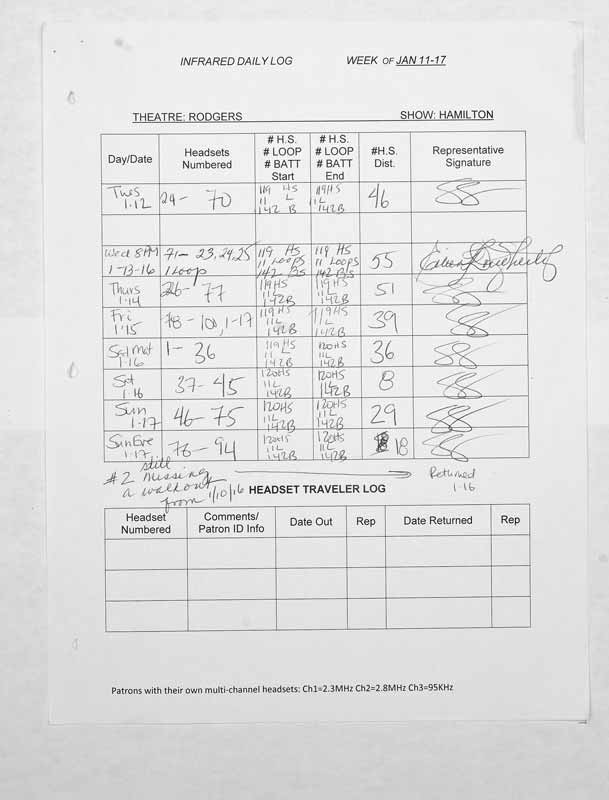 INFRARED DAILY LOG WEEK OF JAN 11-17
THEATRE: RODGERS SHOW: HAMILTON
Day/Date Headsets Numbered # H.S. # LOOP # BATT Start # H.S. # LOOP # BATT End #H.S. Dist. Representative Signature
Tues 1-12 29- 70 119 HS 11 L 142 B 119 HS 11L 142B 46
Wed 8PM 1-13-16 71- 23,24,25 1 Loop 119 HS 11 Loops 142 B's 119 HS 11 LOOPS 142 B's 55
Thurs 1-14 26- 77 119 HS 11L 142B 119HS 11L 142B 51
Fri 1-15 78-100, 1-17 119 HS 11L 142B 119HS 11L 142B 39
Sat Mat 1-16 1- 36 119HS 11 L 142B 120HS 11L 142B 36
Sat 1-16 37-45 120HS 11L 142B 120HS 11L 142B 8
Sun 1-17 46-75 120HS 11L 142B 120HS 11L 142B 29
Sun Eve 1-17 76-94 120HS 11L 142B 120HS 11L 142B 18
#2 still missing a walkout from 1/10/16 Returned 1-16
HEADSET TRAVELER LOG
Headset Numbered Comments/ Patron ID Info Date Out Rep Date Returned Rep
Patrons with their own multi-channel headsets: Ch1=2.3MHz Ch2=2.8MHz Ch3=95KHz